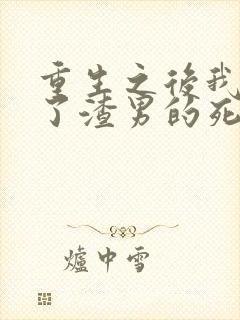 重生之後我
了渣男的死
爐中雪